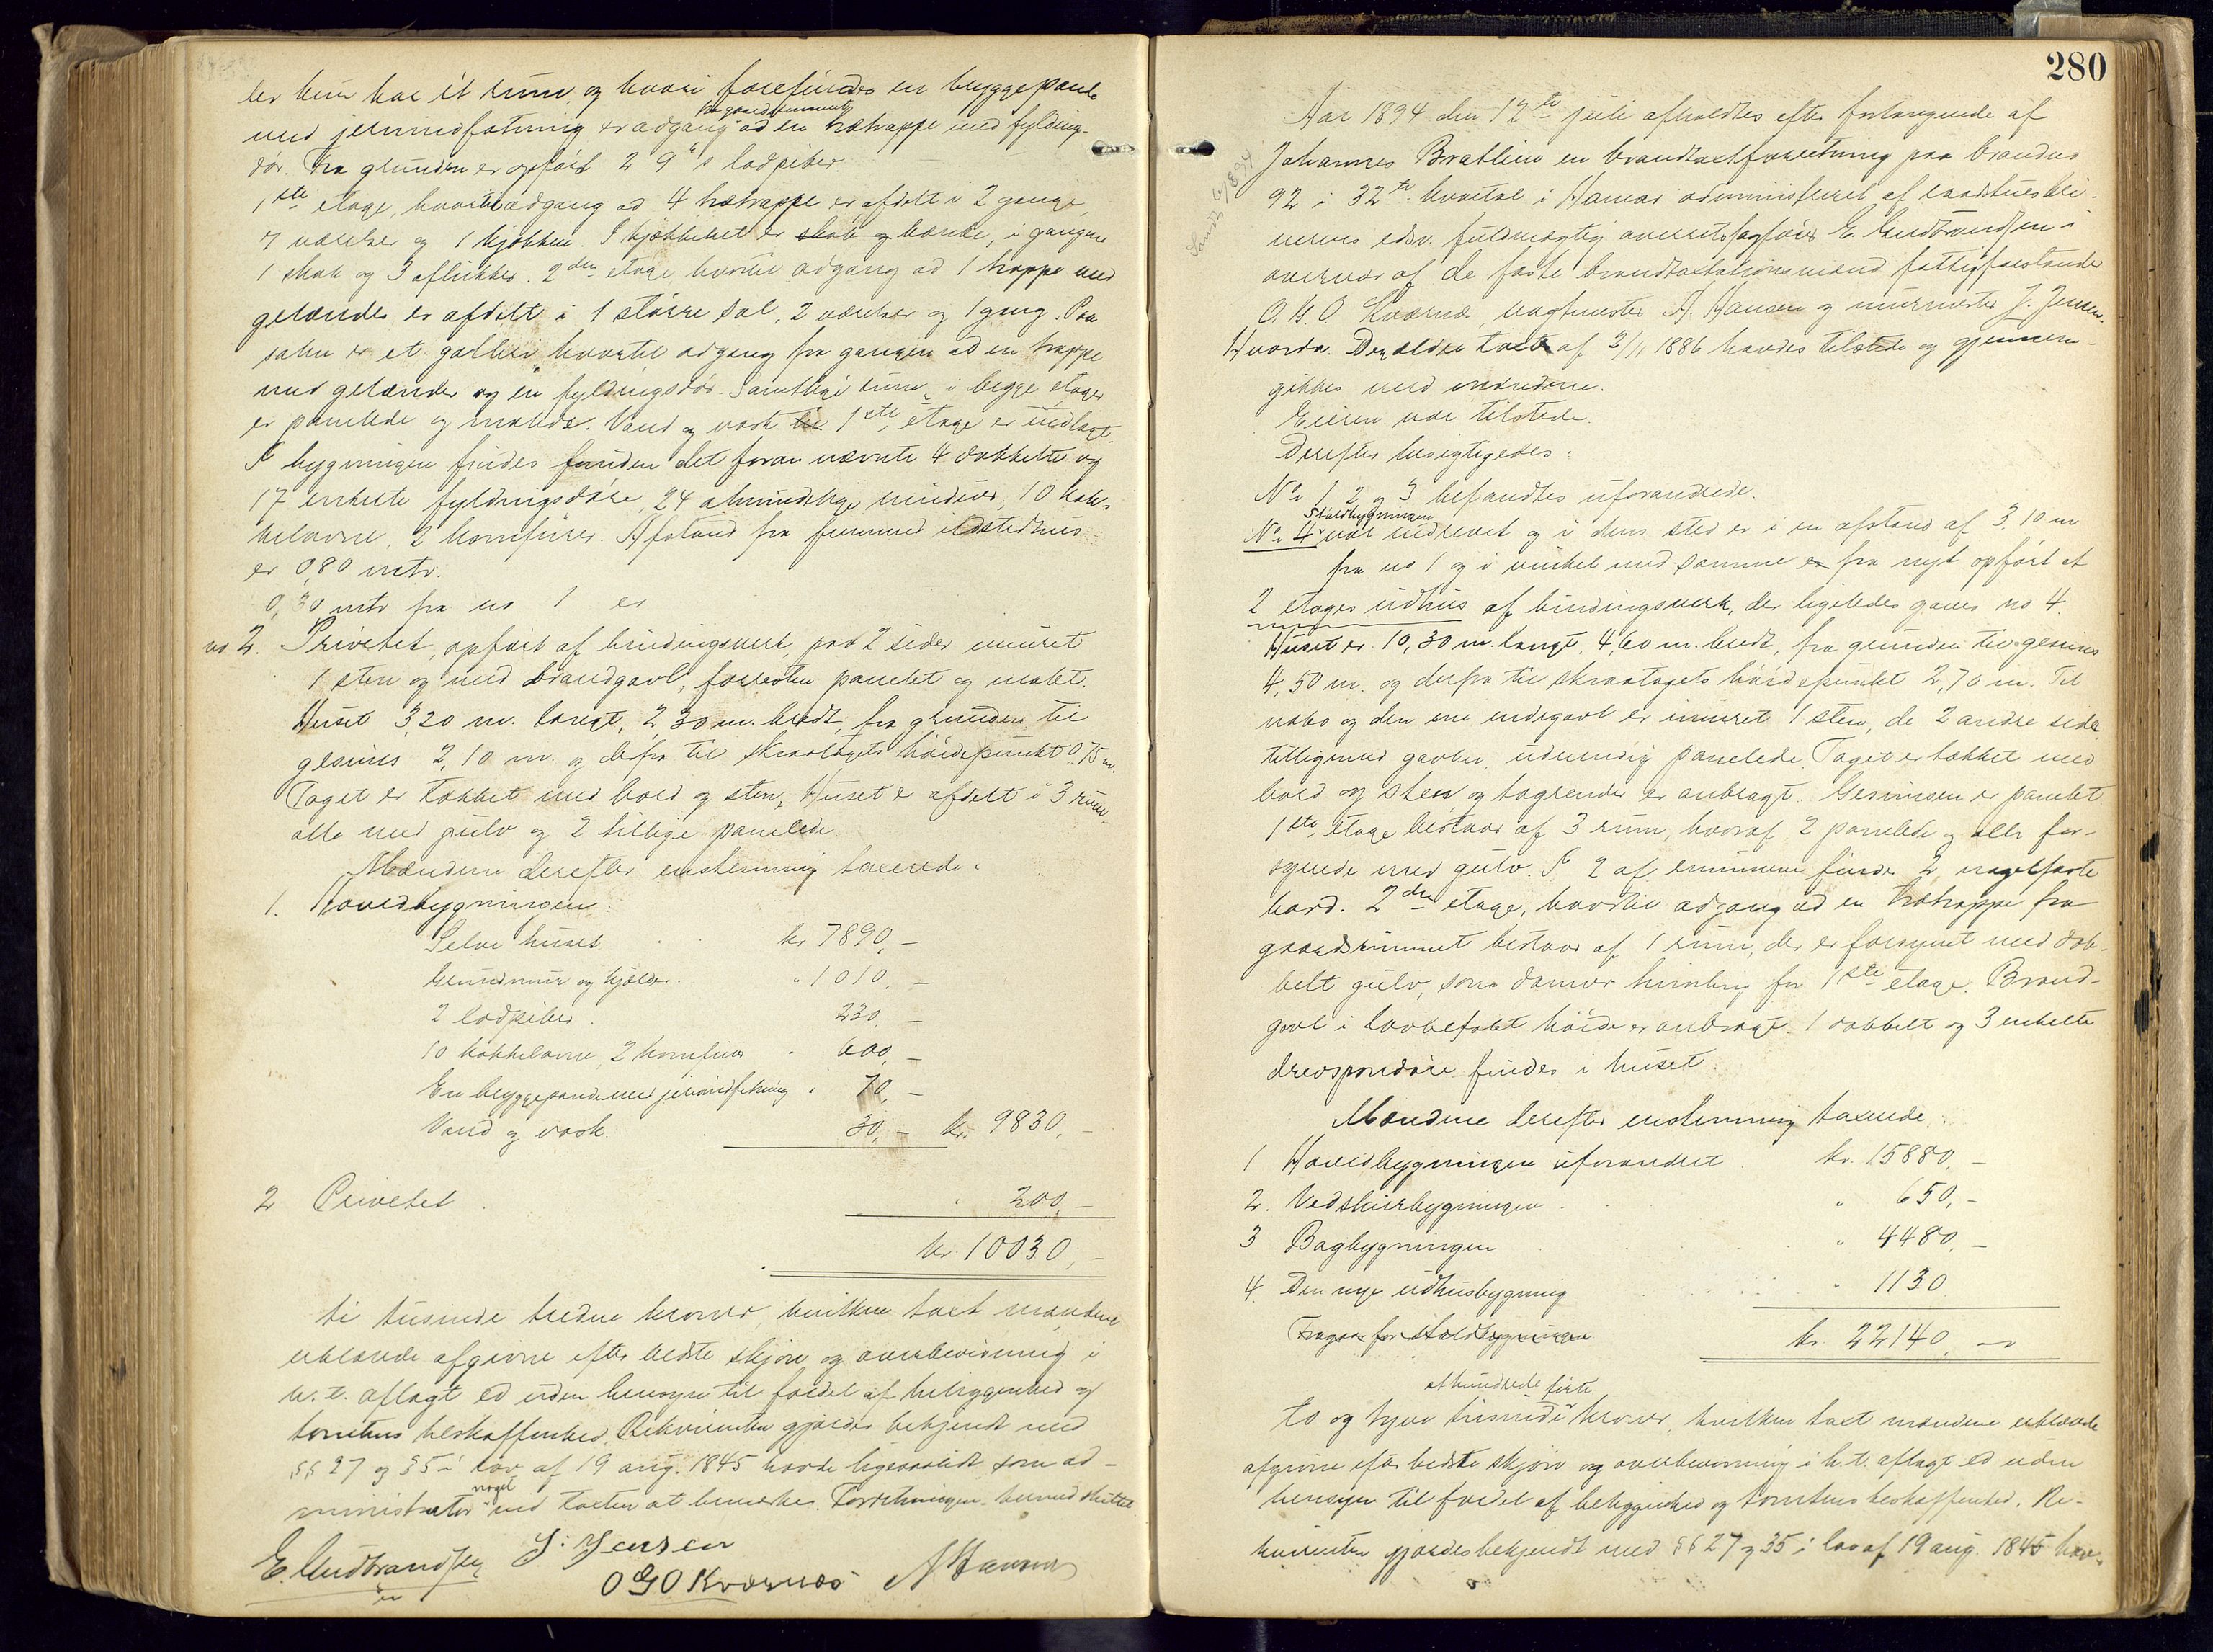 der kun har et rum, og hvori forefindes en bryggepande
med jernindfatning & adgang fra gaardsrummet ad en trætrappe med fyldnings-
dør. Fra grunden er opført 2 9"s lodpiber.
1ste etage, hvortil adgang ad 4 trætrappe er afdelt i 2 gange,
7 værelser og 1 kjøkken. I kjøkkenet er skab og bænke, i gangene
1 skab og 3 aflukker. 2den etage hvortil adgang ad 1 trappe med
gelænder er afdelt i 1 større sal, 2 værelser og 1 gang. Paa
salen er et galleri hvortil adgang fra gangen ad en trappe
med gelænder og en fyldningsdør. Samtlige rum i begge etager
er panelede og malede. Vand og vask til 1ste etage er indlagt.
I bygningen findes foruden det foran nævnte 4 dobbelte og
17 enkelte fyldningsdøre, 24 almindelige vinduer, 10 kak-
kelovne, 2 komfurer. Afstand fra fremmed ildstedhus
er 0,80 mtr.
0,30 mtr fra no 1 er
no 2. Privetet, opført af bindingsverk, paa 2 sider muret
1 sten og med brandgavl, forresten panelet og malet.
Huset 3,20 m. langt, 2,30 m. bredt, fra grunden til
gesims 2,10 m. og derfra til skraatagets høidepunkt 0,75 m.
Taget er tækket med bord og sten, Huset er afdelt i 3 rum,
alle med gulv og 2 tillige panelede
Mændene derefter enstemmig taxerede:
1. Hovedbygningen:
Selve huset kr 7890,-
Grundmur og kjelder. " 1010,-
2 lodpiber. 230,-
10 kakkelovne, 2 komfurer " 600,-
En bryggepande med jernindfatning " 70,-
Vand og vask. 30,- kr. 9830,-
2 Privetet " 200,-
kr. 10030,-
ti tusinde tredive kroner, hvilken taxt mændene
erklærede afgivne efter bedste skjøn og overbevisning i
h. t. aflagt ed uden hensyn til fordel af beliggenhed og
tomtens beskaffenhed. Rekvirenten gjordes bekjendt med
§§ 27 og 35 i lov af 19 aug. 1845 havde ligesaalidt som ad-
ministrator noget ved taxten at bemerke. Forretningen hermed sluttet.
E. Gudbrandsen J: Jensen
OGO Kværnes A Hansen
280
Aar 1894 den 12te juli afholdtes efter forlangende af
Johannes Bratlien en brandtaxtforretning paa brandno
92 i 32te kvartal i Hamar administreret af exadstueskri-
verens edsv. fuldmægtig overretssagfører E. Gudbrandsen i
overvær af de faste brandtaxtationsmænd fattigforstander
O. G. O. Kværnæs, vagtmester A. Hansen og murmester J. Jensen.
Hvorda. Den ældre taxt af 2/11 1886 havdes tilstede og gjennem-
gikkes med mændene.
Eieren var tilstede.
Derefter besigtigedes:
No 1, 2 og 3 befandtes uforandrede.
No 4 Staldbygningen var nedrevet og i dens sted er i en afstand af 3,10 m
fra no 1 og i vinkel med samme er fra nyt opført et
2 etages udhus af bindingsverk, der ligeledes gives no 4.
Huset er 10,30 m. langt, 4,60 m. bredt, fra grunden til gesims
4,50 m. og derfra til skraatagets høidepunkt 2,70 m. Til
nabo og den ene endegavl er muret 1 sten, de 2 andre sider
tilligemed gavlen, udvendig panelede. Taget er tækket med
bord og sten og tagrender er anbragt. Gesimsen er panelet.
1ste etage bestaar af 3 rum, hvoraf 2 panelede og alle for-
synede med gulv. I 2 af rummene findes 2 nagelfaste
bord. 2den etage, hvortil adgang ad en trætrappe fra
gaardsrummet bestaar af 1 rum, der er forsynet med dob-
belt gulv, som danner himling for 1ste etage. Brand-
gavl i lovbefalet høide er anbragt. 1 dobbelt og 3 enkelte
døre findes i huset.
Mændene derefter enstemmig taxerede:
1 Hovedbygningen uforandret kr. 15880,-
2. Vedskurbygningen " 650,-
3 Bagbygningen " 4480,-
4. Den nye udhusbygning " 1130
Fragaar for staldbygningen
kr. 22140,-
to og tyve tusinde et hundrede firti kroner, hvilken taxt mændene erklærede
afgivne efter bedste skjøn og overbevisning i h. t. aflagt ed uden
hensyn til fordel af beliggenhed og tomtens beskaffenhed. Re-
kvirenten gjordes bekjendt med §§ 27 og 35 i lov af 19 aug. 1845 hav-